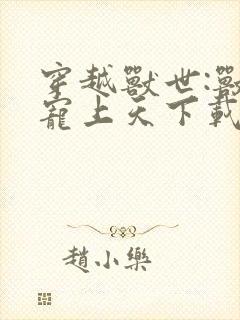 穿越獸世:獸
寵上天下載
趙小樂